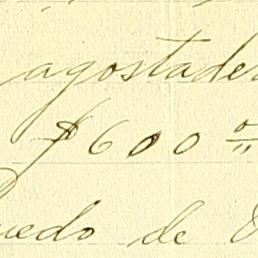 agostader
$600 0/"
uedo de